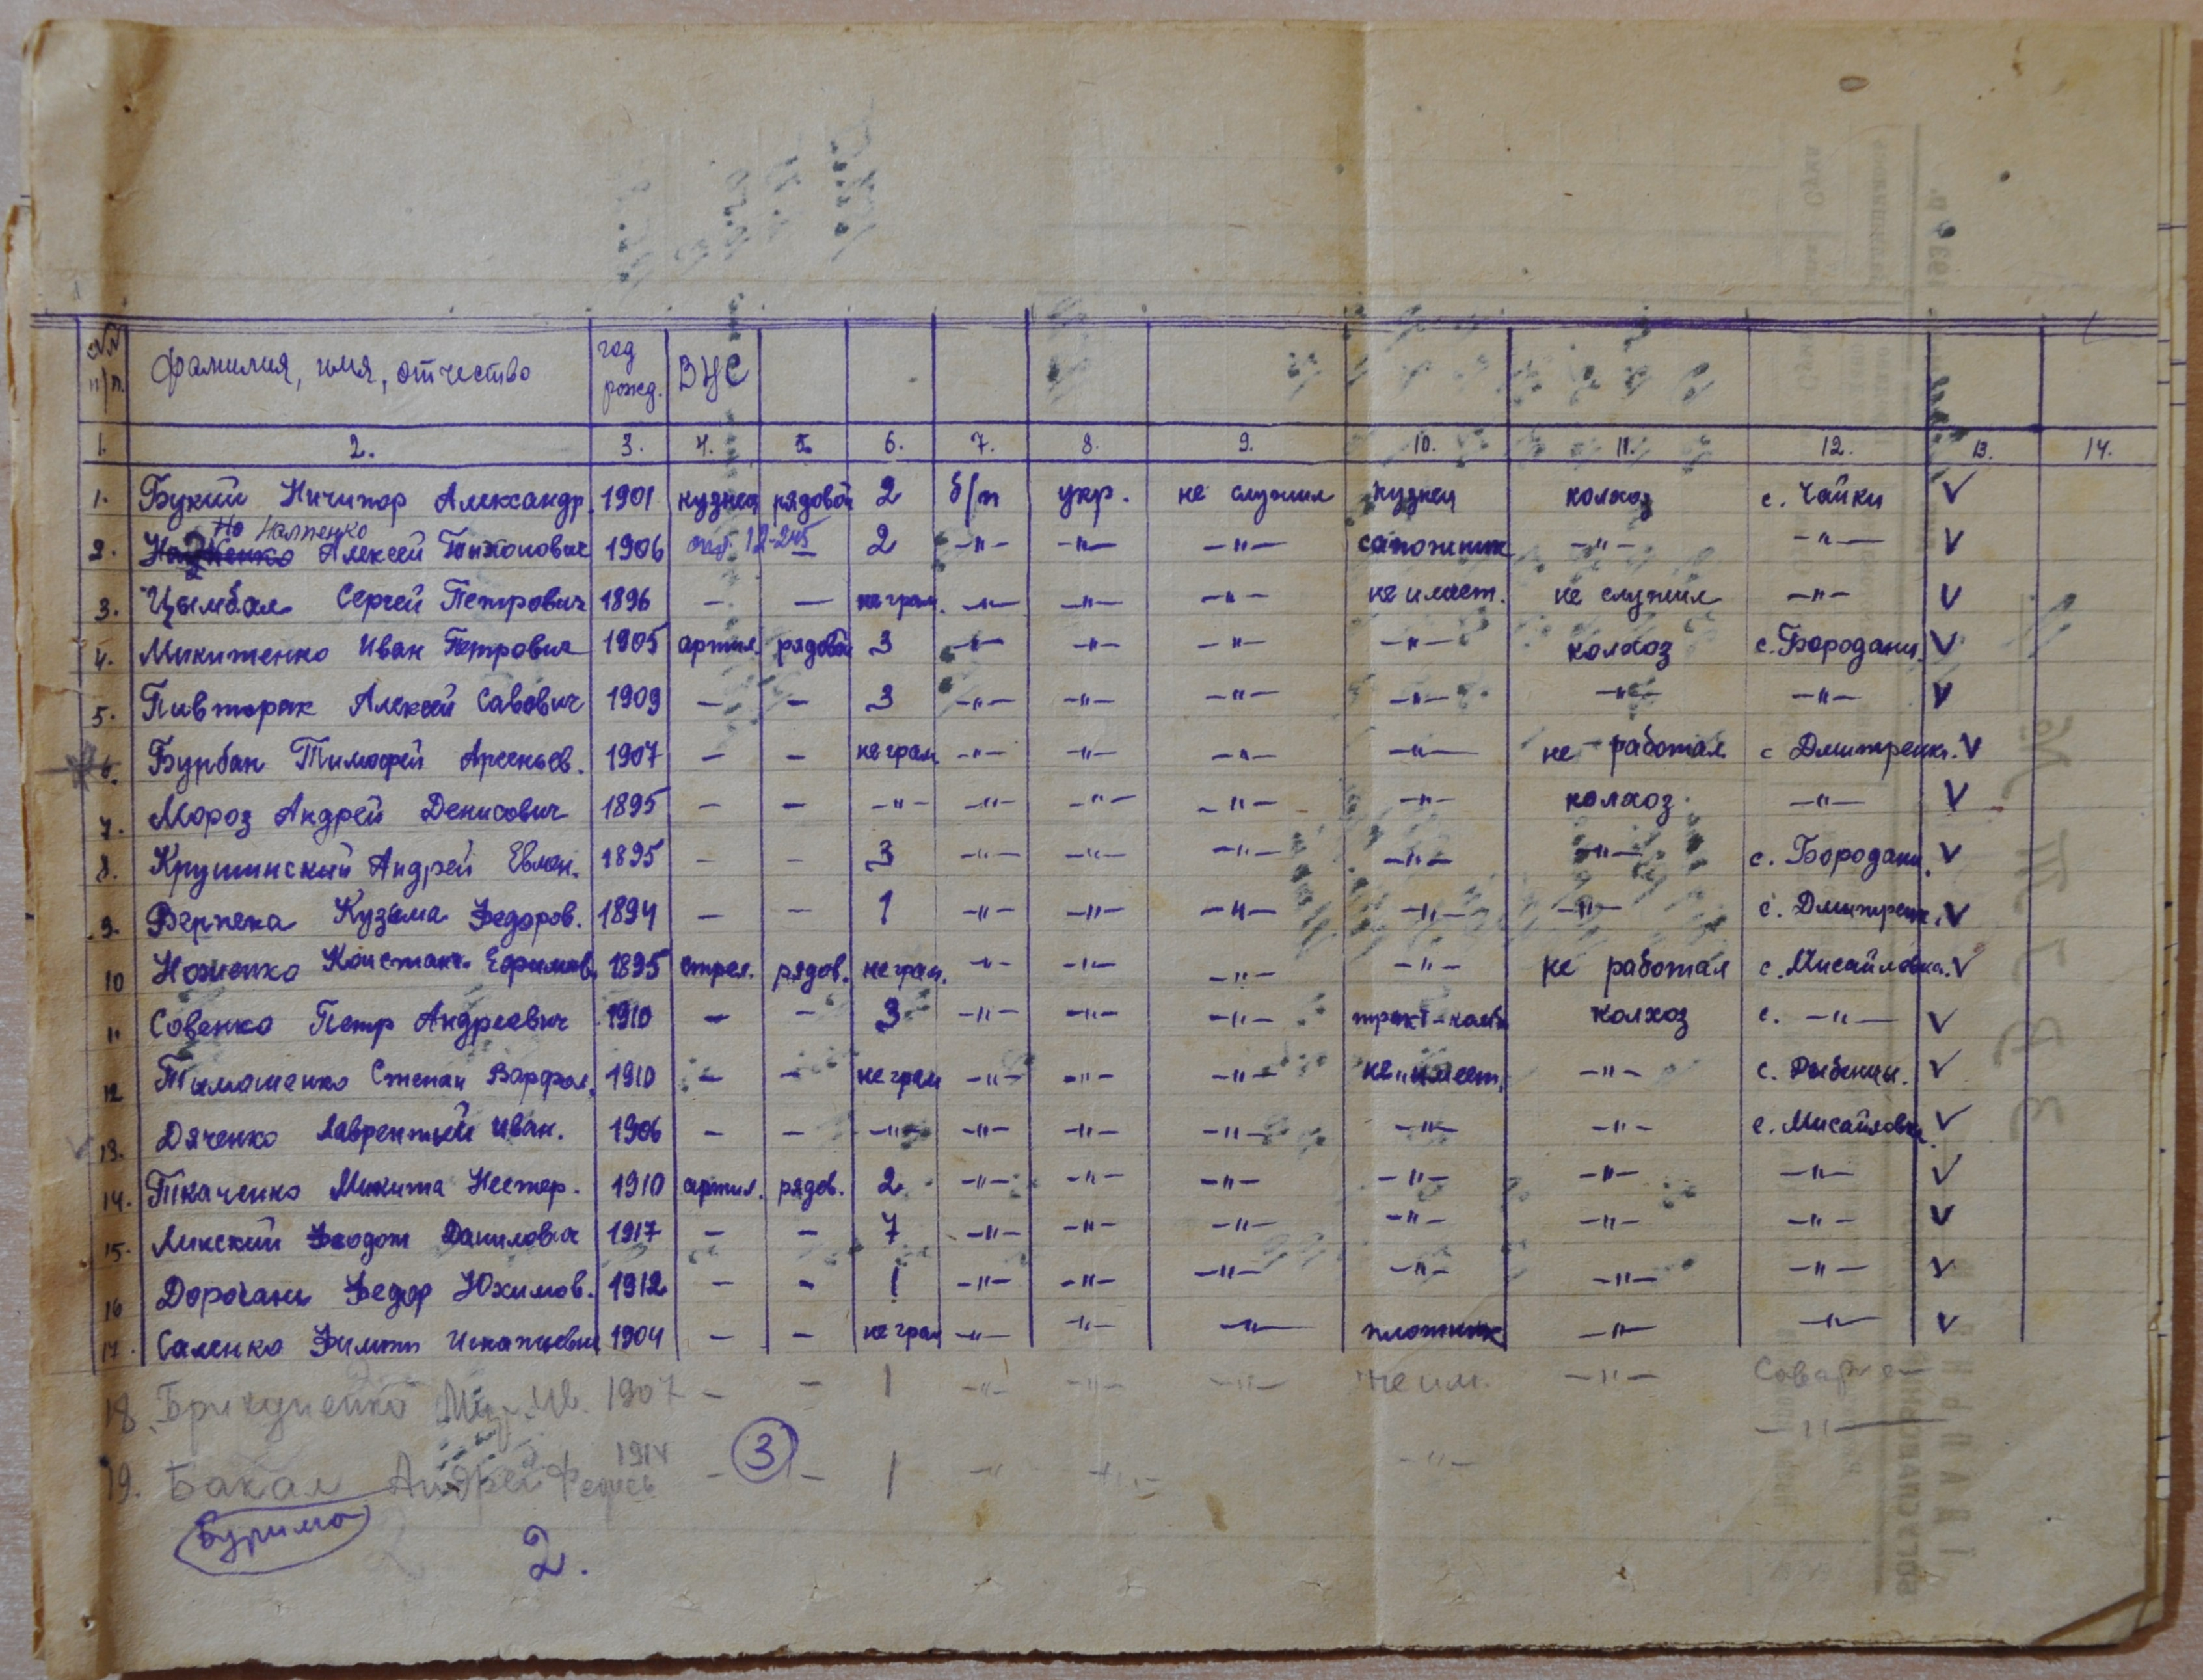 №№ п/п. фамилия, имя, отчество год рожд. ВУС
1. 2. 3. 4. 5. 6. 7. 8. 9. 10. 11. 12. 13. 14.
1. Букий Ничипор Александр. 1901 кузнец рядовой 2 б/п укр. не служил кузнец колхоз с. Чайки V
Налпенко
2. Алексей Тихонович 1906 12-245 2 —"— —"— —"— сапожник —"— —"— V
3. Цымбал Сергей Петрович 1896 — — не грам. —"— —"— —"— не имеет. не служил —"— V
4. Микитенко Иван Петрович 1905 артил. рядовой 3 —"— —"— —"— —"— колхоз с. Бородани. V
5. Пивторак Алексей Савович 1909 — — 3 —"— —"— —"— —"— —"— —"— V
6. Бурбан Тимофей Арсеньев. 1907 — — не грам. —"— —"— —"— —"— не работал с Дмитренки. V
7. Мороз Андрей Денисович 1895 — — —"— —"— —"— —"— —"— колхоз. —"— V
8. Крушинский Андрей Евмен. 1895 — — 3 —"— —"— —"— —"— —"— с. Бородани. V
9. Верпека Кузьма Федоров. 1894 — — 1 —"— —"— —"— —"— —"— с. Дмитренк. V
10 Ноженко Констант. Ефимов. 1895 стрел. рядов. не грам. —"— —"— —"— —"— не работал с. Мисайловка. V
11 Совенко Петр Андреевич 1910 — — 3 —"— —"— —"— тракт-комб. колхоз с. —"— V
12 Тымошенко Степан Варфол. 1910 — — не грам —"— —"— —"— не имеет. —"— с. Рыбенцы. V
13. Дяченко Лаврентий Иван. 1906 — — —"— —"— —"— —"— —"— —"— с. Мисайловка. V
14. Ткаченко Микита Нестер. 1910 артил. рядов. 2 —"— —"— —"— —"— —"— —"— V
15. Линский Феодот Данилович 1917 — — 7 —"— —"— —"— —"— —"— —"— V
16 Дорогань Федор Юхимов. 1912 — — 1 —"— —"— —"— —"— —"— —"— V
17. Саленко Филипп Игнатьевич 1904 — — не грам —"— —"— —"— плотник —"— —"— V
18. 1907 — — 1 —"— —"— —"— не им. —"—
19. Бакал Андрей 1914 — — 1 —"— —"— —"—
3
Буримо
2.